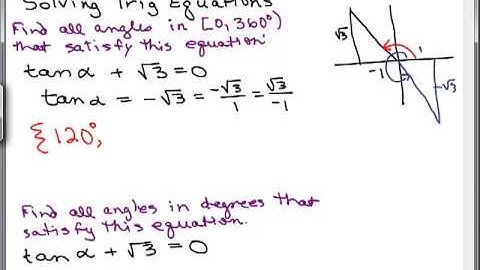 Solving Trig Equations
Find all angles in [0, 360°)
that satisfy this equation:
tan α + √3 = 0
tan α = -√3 = -√3/1 = √3/-1
{120°,
√3
1
-1
-√3
Find all angles in degrees that
satisfy this equation.
tan α + √3 = 0